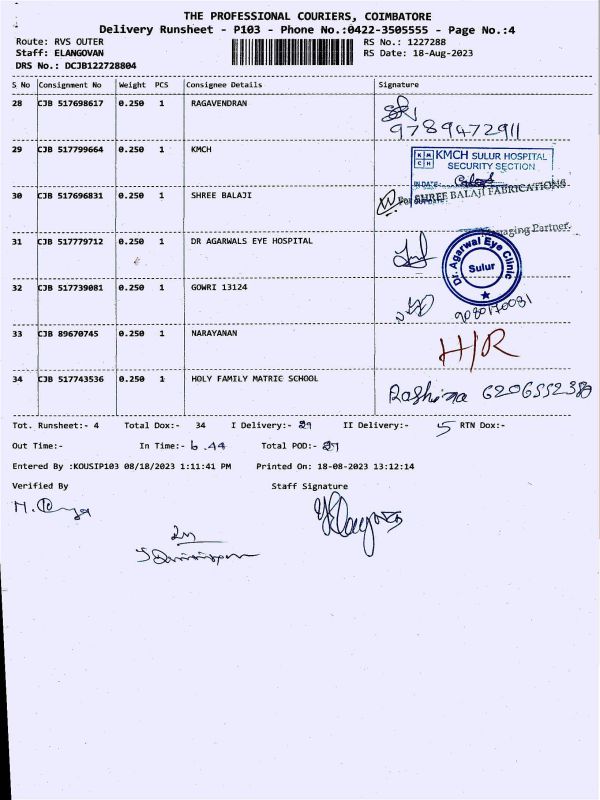 THE PROFESSIONAL COURIERS, COIMBATORE
Delivery Runsheet - P103 - Phone No.:0422-3505555 - Page No.:4
Route: RVS OUTER RS No.: 1227288
Staff: ELANGOVAN RS Date: 18-Aug-2023
DRS No.: DCJB122728804
S No Consignment No Weight PCS Consignee Details Signature
28 CJB 517698617 0.250 1 RAGAVENDRAN
9789472911
29 CJB 517799664 0.250 1 KMCH
KMCH KMCH SULUR HOSPITAL
SECURITY SECTION
IN DATE:
30 CJB 517696831 0.250 1 SHREE BALAJI
For SHREE BALAJI FABRICATIONS
Managing Partner
31 CJB 517779712 0.250 1 DR AGARWALS EYE HOSPITAL
Dr. Agarwal Eye Clinic
Sulur
32 CJB 517739081 0.250 1 GOWRI 13124
33 CJB 89670745 0.250 1 NARAYANAN
H/R
34 CJB 517743536 0.250 1 HOLY FAMILY MATRIC SCHOOL
Tot. Runsheet:- 4 Total Dox:- 34 I Delivery:- 29 II Delivery:- 5 RTN Dox:-
Out Time:- In Time:- 6.44 Total POD:-
Entered By :KOUSIP103 08/18/2023 1:11:41 PM Printed On: 18-08-2023 13:12:14
Verified By Staff Signature